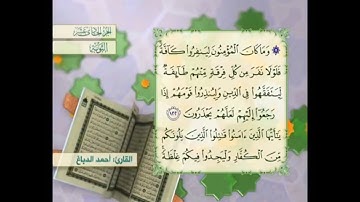 الجزء الحادي عشر
التوبة
وَمَا كَانَ الْمُؤْمِنُونَ لِيَنفِرُوا كَافَّةً
فَلَوْلَا نَفَرَ مِن كُلِّ فِرْقَةٍ مِّنْهُمْ طَائِفَةٌ
لِّيَتَفَقَّهُوا فِي الدِّينِ وَلِيُنذِرُوا قَوْمَهُمْ إِذَا
رَجَعُوا إِلَيْهِمْ لَعَلَّهُمْ يَحْذَرُونَ ١٢٢
يَا أَيُّهَا الَّذِينَ آمَنُوا قَاتِلُوا الَّذِينَ يَلُونَكُم
مِّنَ الْكُفَّارِ وَلْيَجِدُوا فِيكُمْ غِلْظَةً
القارئ: أحمد الدباغ